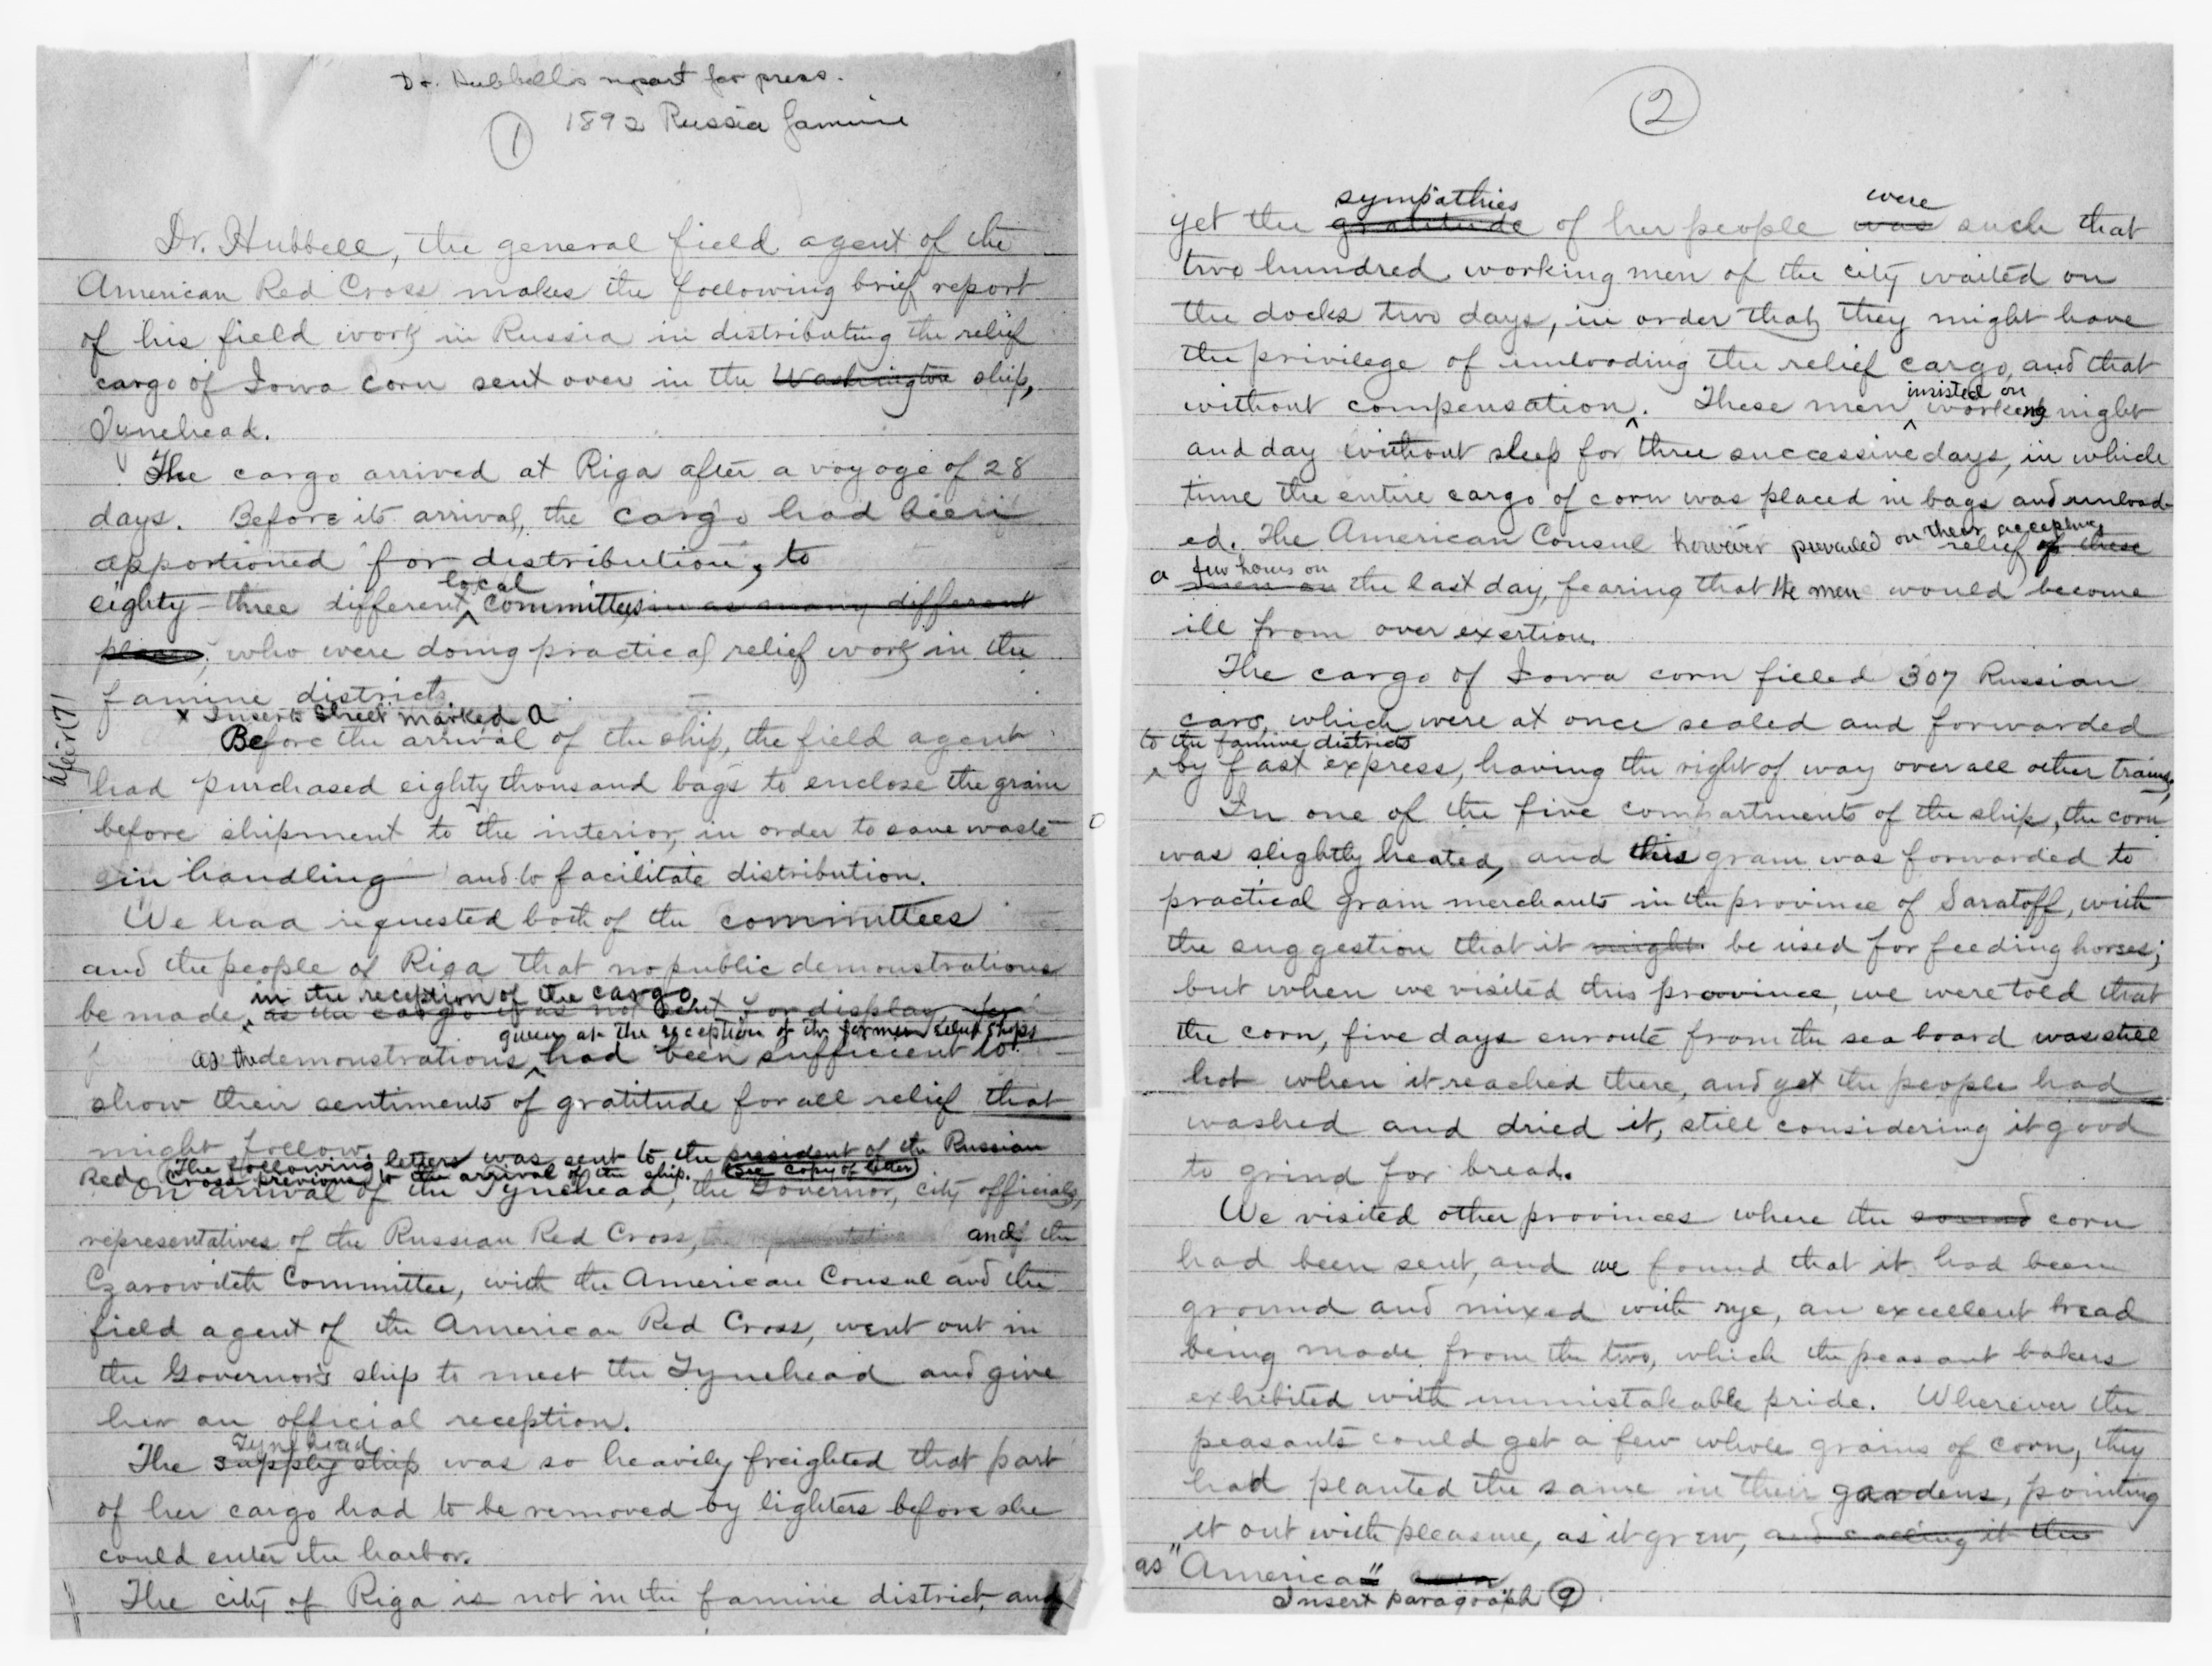 Dr. Hubbell's report for press.
1892 Russia famine
1
Dr. Hubbell, the general field agent of the
American Red Cross makes the following brief report
of his field work in Russia in distributing the relief
cargo of Iowa corn sent over in the Washington ship,
Tynehead.
The cargo arrived at Riga after a voyage of 28
days. Before its arrival, the cargo had been
apportioned for distribution, to
local
eighty-three different committees in as many different
places, who were doing practical relief work in the
famine districts
x Insert Sheet marked A
Before the arrival of the ship, the field agent
had purchased eighty thousand bags to enclose the grain
before shipment to the interior, in order to save waste
in handling and to facilitate distribution.
We had requested both of the committees
and the people of Riga that no public demonstrations
in the reception of the cargo,
be made, as the cargo was not sent for display, for
given at the reception of the former relief ships
as the demonstrations had been sufficient to
show their sentiments of gratitude for all relief that
might follow.
The following letter was sent to the president of the Russian
Red Cross previous to the arrival of the ship. (See copy of letter)
On arrival of the Tynehead, the Governor, city officials,
representatives of the Russian Red Cross, and of the
Czarowitch Committee, with the American Consul and the
field agent of the American Red Cross, went out in
the Governor's ship to meet the Tynehead and give
her an official reception.
Tynehead
The supply ship was so heavily freighted that part
of her cargo had to be removed by lighters before she
could enter the harbor.
The city of Riga is not in the famine district, and
2
sympathies were
yet the gratitude of her people was such that
two hundred working men of the city waited on
the docks two days, in order that they might have
the privilege of unloading the relief cargo, and that
insisted on
without compensation. These men working night
and day without sleep for three successive days, in which
time the entire cargo of corn was placed in bags and unload-
ed. The American Consul however prevailed on their accepting relief of these
a few hours on
men on the last day, fearing that the men would become
ill from over exertion.
The cargo of Iowa corn filled 307 Russian
cars, which were at once sealed and forwarded
to the famine districts
by fast express, having the right of way over all other trains.
In one of the five compartments of the ship, the corn
was slightly heated, and this grain was forwarded to
practical grain merchants in the province of Saratoff, with
the suggestion that it might be used for feeding horses;
but when we visited this province, we were told that
the corn, five days enroute from the sea board was still
hot when it reached there, and yet the people had
washed and dried it, still considering it good
to grind for bread.
We visited other provinces where the sound corn
had been sent, and we found that it had been
ground and mixed with rye, an excellent bread
being made from the two, which the peasant bakers
exhibited with unmistakable pride. Wherever the
peasants could get a few whole grains of corn, they
had planted the same in their gardens, pointing
it out with pleasure, as it grew, and calling it the
as "America" corn
Insert paragraph 9